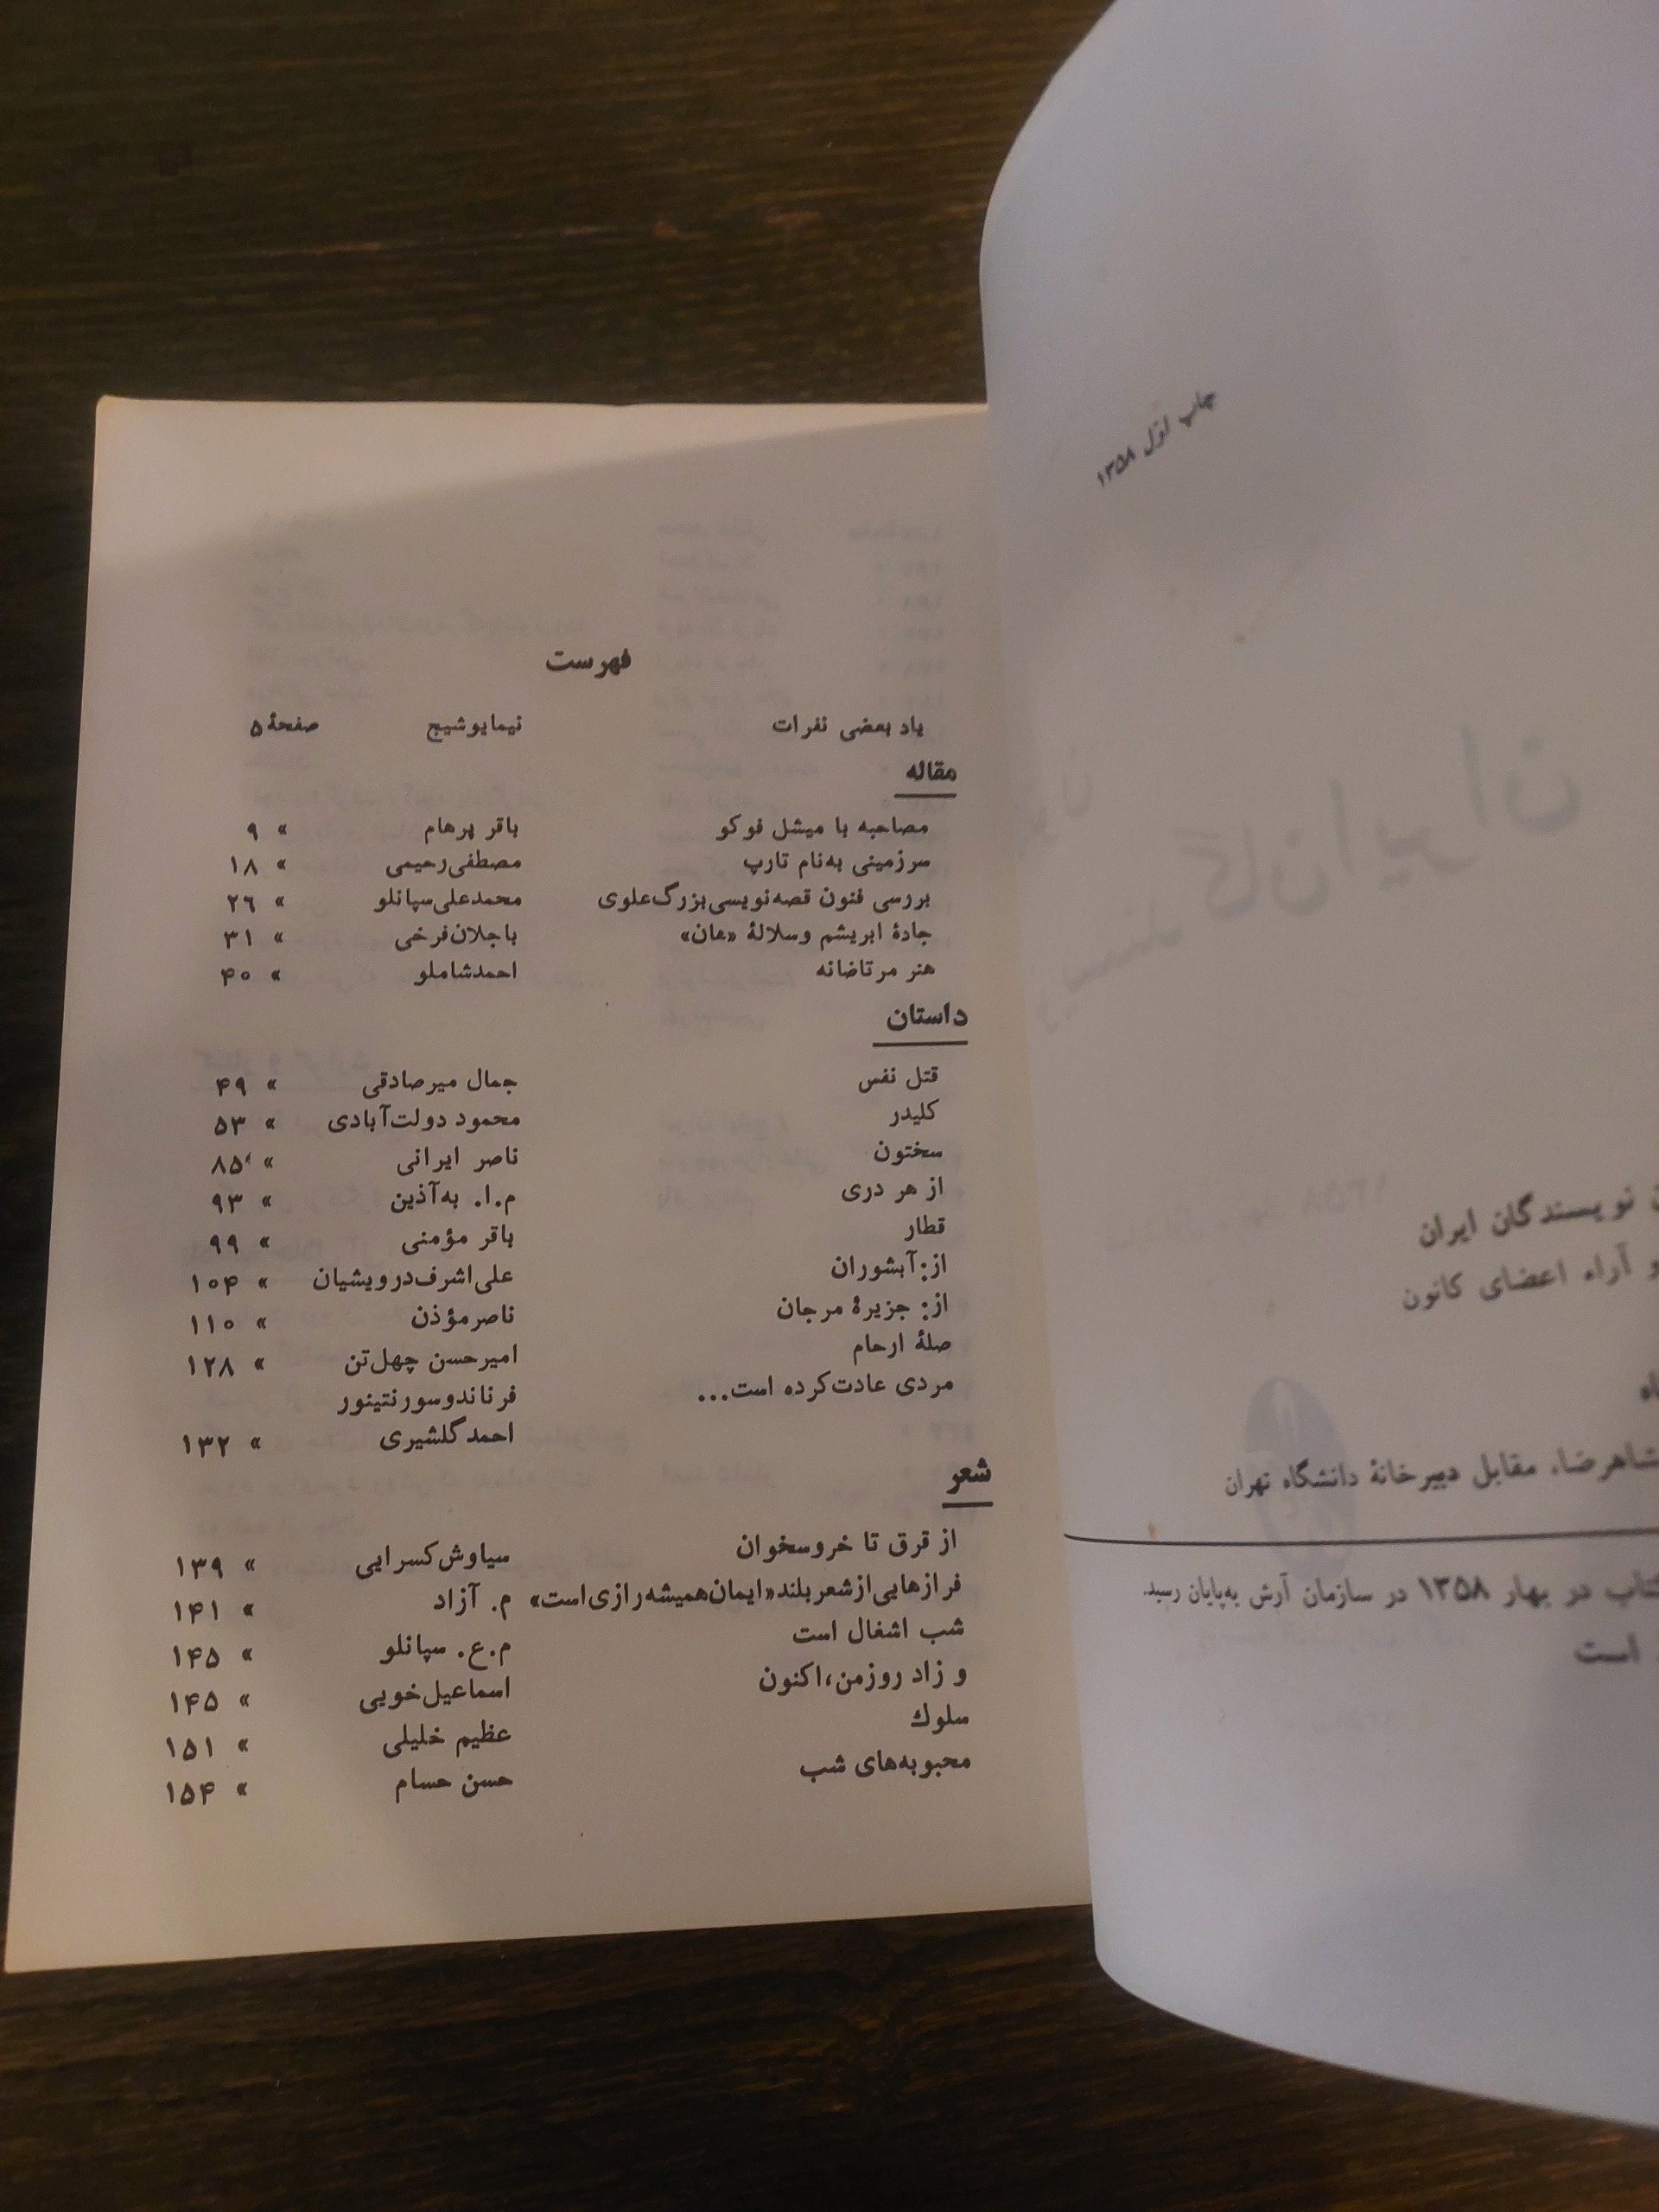 چاپ اوّل ۱۳۵۸
نویسندگان ایران
و آراء اعضای کانون
شاهرضا، مقابل دبیرخانهٔ دانشگاه تهران
در بهار ۱۳۵۸ در سازمان آرش به‌پایان رسید.
است
فهرست
یاد بعضی نفرات نیمایوشیج صفحهٔ ۵
مقاله
مصاحبه با میشل فوکو باقر پرهام » ۹
سرزمینی به‌نام تارپ مصطفی‌رحیمی » ۱۸
بررسی فنون قصه‌نویسی‌بزرگ‌علوی محمدعلی‌سپانلو » ۲۶
جادهٔ ابریشم وسلالهٔ «هان» باجلان‌فرخی » ۳۱
هنر مرتاضانه احمدشاملو » ۴۰
داستان
قتل نفس جمال میرصادقی » ۴۹
کلیدر محمود دولت‌آبادی » ۵۳
سختون ناصر ایرانی » ۸۵
از هر دری م.ا. به‌آذین » ۹۳
قطار باقر مؤمنی » ۹۹
از:آبشوران علی‌اشرف‌درویشیان » ۱۰۴
از: جزیرهٔ مرجان ناصرمؤذن » ۱۱۰
صلهٔ ارحام امیرحسن چهل‌تن » ۱۲۸
مردی عادت‌کرده است... فرناندوسورنتینور
احمدگلشیری » ۱۳۲
شعر
از قرق تا خروسخوان سیاوش‌کسرایی » ۱۳۹
فرازهایی‌ازشعربلند«ایمان‌همیشه‌رازی‌است» م. آزاد » ۱۴۱
شب اشغال است م.ع. سپانلو » ۱۴۵
و زاد روزمن،اکنون اسماعیل‌خویی » ۱۴۵
سلوك عظیم خلیلی » ۱۵۱
محبوبه‌های شب حسن حسام » ۱۵۴